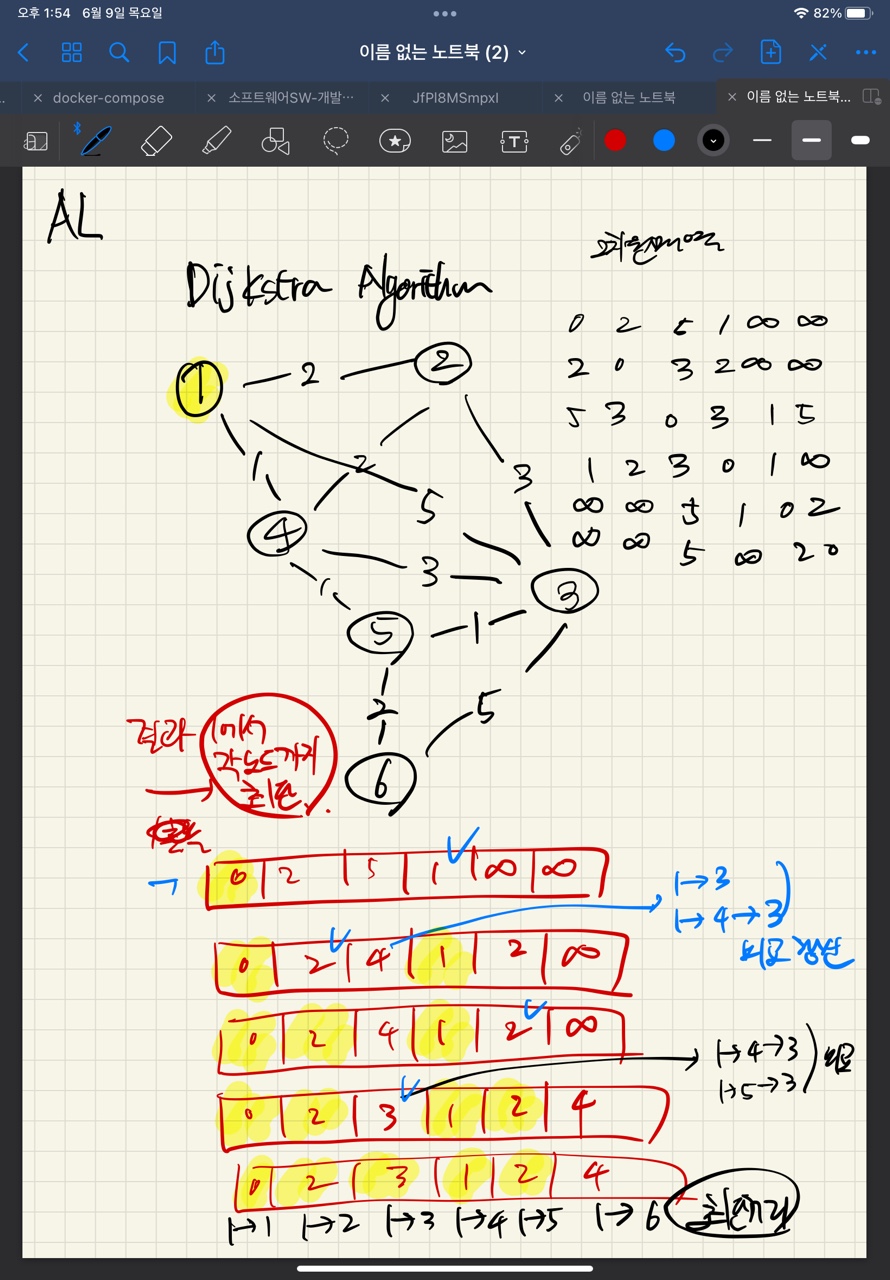 오후 1:54 6월 9일 목요일
82%
이름 없는 노트북 (2)
docker-compose
소프트웨어SW-개발…
JfPI8MSmpxI
이름 없는 노트북
이름 없는 노트북...
AL
Dijkstra Algorithm
0 2 5 1 ∞ ∞
2 0 3 2 ∞ ∞
5 3 0 3 1 5
1 2 3 0 1 ∞
∞ ∞ 5 1 0 2
∞ ∞ 5 ∞ 2 0
1 2 2
1 2 3
5
4
3
1 3
5 1
2 5
6
결과 1에서
각 노드까지
최단
0 2 5 1 ∞ ∞
1→3
1→4→3
비교 갱신
0 2 4 1 2 ∞
0 2 4 1 2 ∞
1→4→3
1→5→3
비교
0 2 3 1 2 4
0 2 3 1 2 4
1→1 1→2 1→3 1→4 1→5 1→6